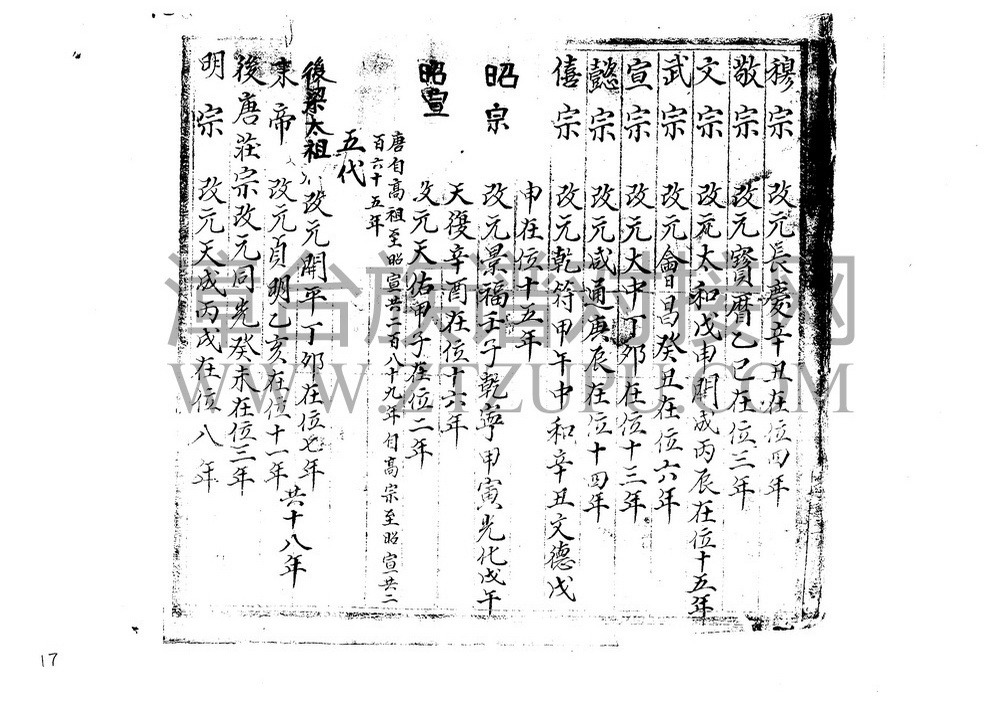 穆宗 改元長慶辛丑在位四年
敬宗 改元寶曆乙巳在位三年
文宗 改元太和戊申開成丙辰在位十五年
武宗 改元會昌癸丑在位六年
宣宗 改元大中丁卯在位十三年
懿宗 改元咸通庚辰在位十四年
僖宗 改元乾符甲午中和辛丑文德戊
申在位十五年
昭宗 改元景福壬子乾寧甲寅光化戊午
天復辛酉在位十六年
昭宣 改元天佑甲子在位二年
唐自高祖至昭宣共二百八十九年自高宗至昭宣共二
百六十五年
五代
後梁太祖 改元開平丁卯在位七年
末帝 改元貞明乙亥在位十一年 共十八年
後唐莊宗改元同光癸未在位三年
明宗 改元天成丙戌在位八年
漳台族譜對接网
WWW.ZTZUPU.COM
17